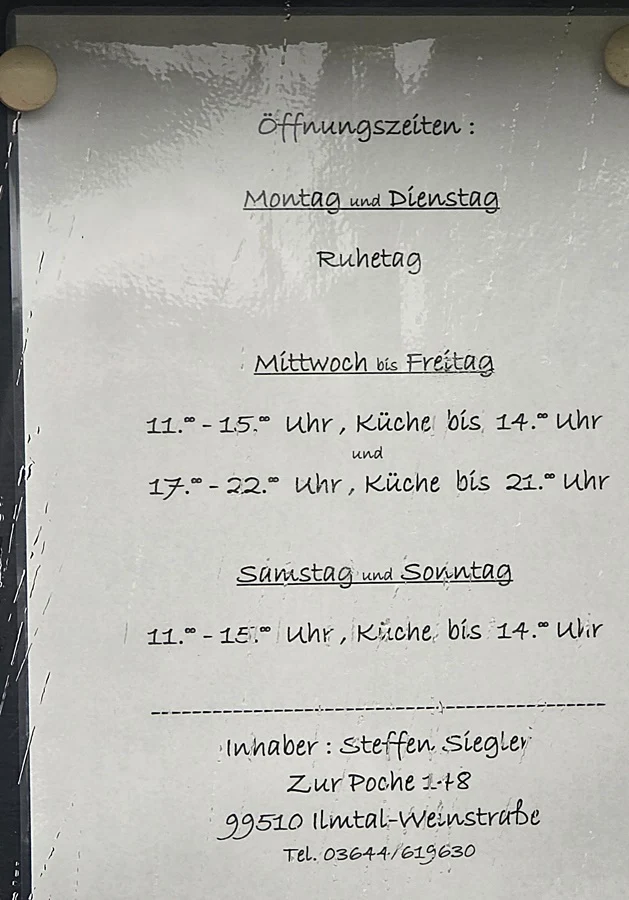 Öffnungszeiten :
Montag und Dienstag
Ruhetag
Mittwoch bis Freitag
11.°° - 15.°° Uhr , Küche bis 14.°° Uhr
und
17.°° - 22.°° Uhr , Küche bis 21.°° Uhr
Samstag und Sonntag
11.°° - 15.°° Uhr , Küche bis 14.°° Uhr
Inhaber : Steffen Siegler
Zur Poche 1+8
99510 Ilmtal-Weinstraße
Tel. 03644/619630